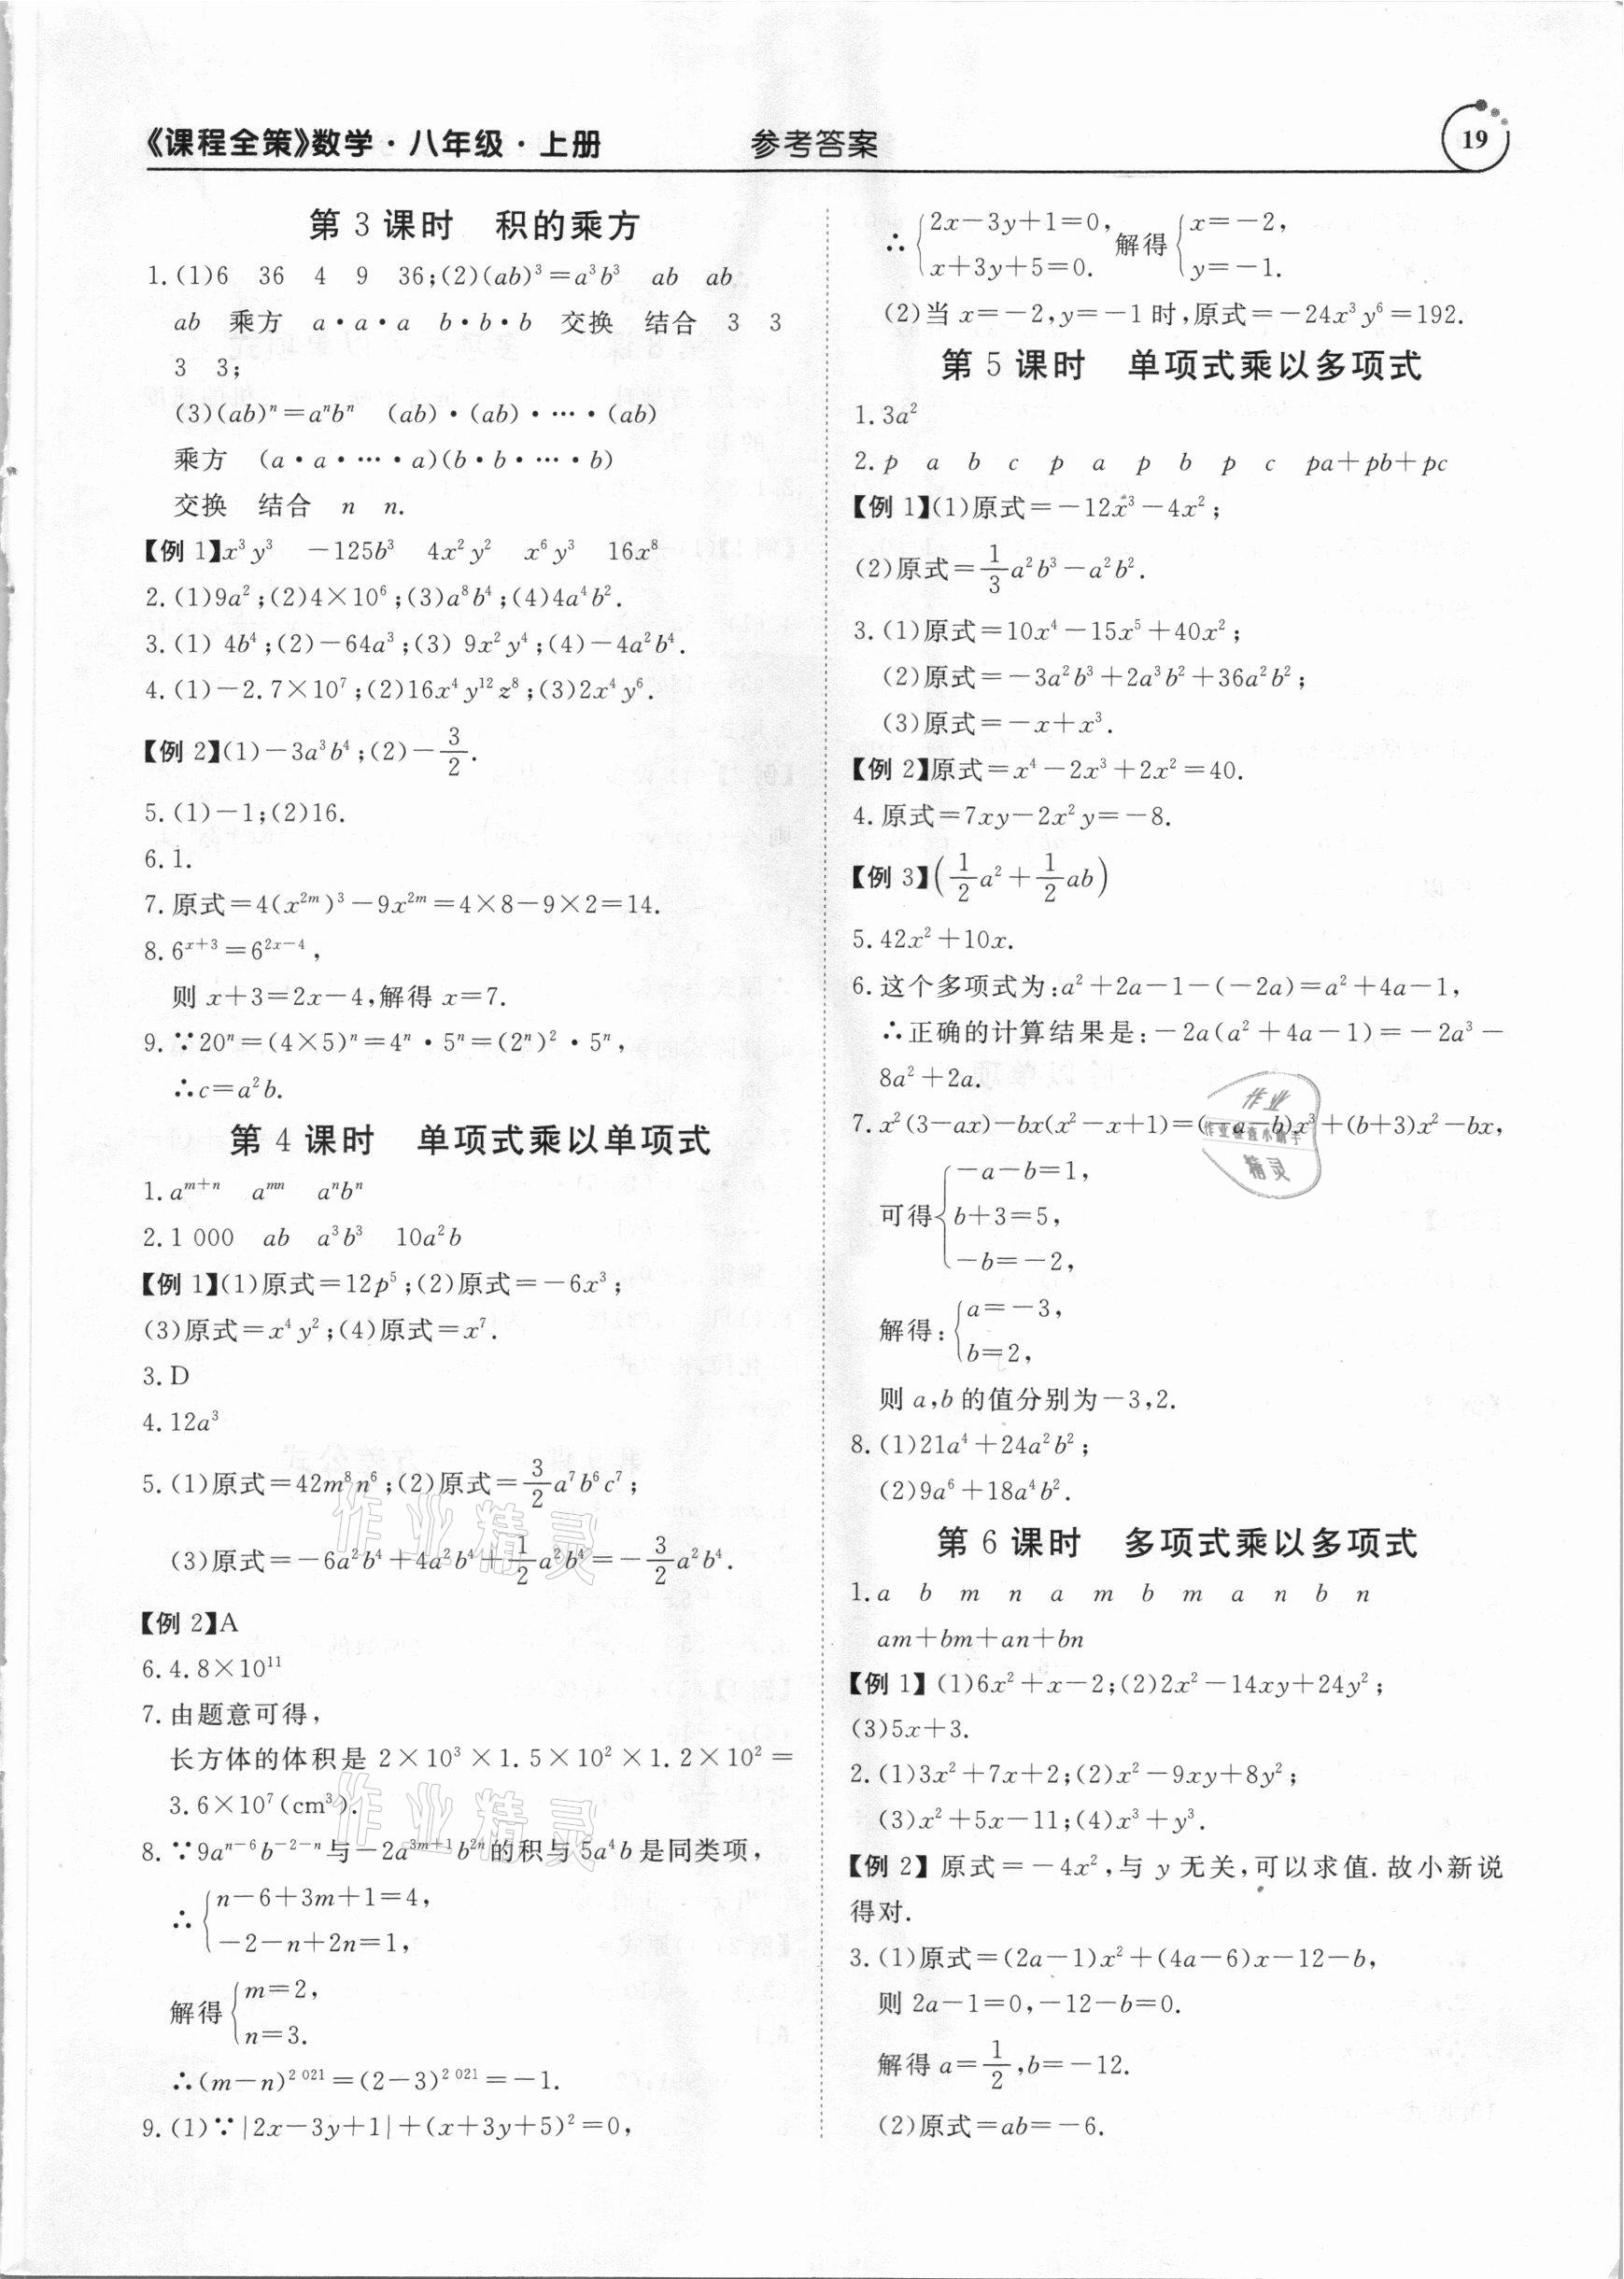 《课程全策》数学·八年级·上册 参考答案 19
第 3 课时 积的乘方
1.(1)6 36 4 9 36;(2)(ab)³=a³b³ ab ab
ab 乘方 a·a·a b·b·b 交换 结合 3 3
3 3;
(3)(ab)ⁿ=aⁿbⁿ (ab)·(ab)·…·(ab)
乘方 (a·a·…·a)(b·b·…·b)
交换 结合 n n.
【例 1】x³y³ -125b³ 4x²y² x⁶y³ 16x⁸
2.(1)9a²;(2)4×10⁶;(3)a⁸b⁴;(4)4a⁴b².
3.(1) 4b⁴;(2)-64a³;(3) 9x²y⁴;(4)-4a²b⁴.
4.(1)-2.7×10⁷;(2)16x⁴y¹²z⁸;(3)2x⁴y⁶.
【例 2】(1)-3a³b⁴;(2)-3/2.
5.(1)-1;(2)16.
6.1.
7.原式=4(x²ᵐ)³-9x²ᵐ=4×8-9×2=14.
8.6ˣ⁺³=6²ˣ⁻⁴,
则 x+3=2x-4,解得 x=7.
9.∵20ⁿ=(4×5)ⁿ=4ⁿ·5ⁿ=(2ⁿ)²·5ⁿ,
∴c=a²b.
第 4 课时 单项式乘以单项式
1.aᵐ⁺ⁿ aᵐⁿ aⁿbⁿ
2.1 000 ab a³b³ 10a²b
【例 1】(1)原式=12p⁵;(2)原式=-6x³;
(3)原式=x⁴y²;(4)原式=x⁷.
3.D
4.12a³
5.(1)原式=42m⁸n⁶;(2)原式=3/2a⁷b⁶c⁷;
(3)原式=-6a²b⁴+4a²b⁴+1/2a²b⁴=-3/2a²b⁴.
【例 2】A
6.4.8×10¹¹
7.由题意可得,
长方体的体积是 2×10³×1.5×10²×1.2×10²=
3.6×10⁷(cm³).
8.∵9aⁿ⁻⁶b⁻²⁻ⁿ与-2a³ᵐ⁺¹b²ⁿ的积与5a⁴b是同类项,
∴{n-6+3m+1=4,
-2-n+2n=1,
解得{m=2,
n=3.
∴(m-n)²⁰²¹=(2-3)²⁰²¹=-1.
9.(1)∵|2x-3y+1|+(x+3y+5)²=0,
∴{2x-3y+1=0, 解得{x=-2,
x+3y+5=0. y=-1.
(2)当 x=-2,y=-1 时,原式=-24x³y⁶=192.
第 5 课时 单项式乘以多项式
1.3a²
2.p a b c p a p b p c pa+pb+pc
【例 1】(1)原式=-12x³-4x²;
(2)原式=1/3a²b³-a²b².
3.(1)原式=10x⁴-15x⁵+40x²;
(2)原式=-3a²b³+2a³b²+36a²b²;
(3)原式=-x+x³.
【例 2】原式=x⁴-2x³+2x²=40.
4.原式=7xy-2x²y=-8.
【例 3】(1/2a²+1/2ab)
5.42x²+10x.
6.这个多项式为:a²+2a-1-(-2a)=a²+4a-1,
∴正确的计算结果是:-2a(a²+4a-1)=-2a³-
8a²+2a.
7.x²(3-ax)-bx(x²-x+1)=(-a-b)x³+(b+3)x²-bx,
可得{-a-b=1,
b+3=5,
-b=-2,
解得:{a=-3,
b=2,
则 a,b 的值分别为-3,2.
8.(1)21a⁴+24a²b²;
(2)9a⁶+18a⁴b².
第 6 课时 多项式乘以多项式
1.a b m n a m b m a n b n
am+bm+an+bn
【例 1】(1)6x²+x-2;(2)2x²-14xy+24y²;
(3)5x+3.
2.(1)3x²+7x+2;(2)x²-9xy+8y²;
(3)x²+5x-11;(4)x³+y³.
【例 2】原式=-4x²,与 y 无关,可以求值.故小新说
得对.
3.(1)原式=(2a-1)x²+(4a-6)x-12-b,
则 2a-1=0,-12-b=0.
解得 a=1/2,b=-12.
(2)原式=ab=-6.
作业精灵
作业精灵
作业
作业检查小帮手
精灵